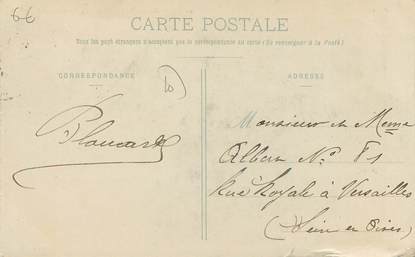 6€
CARTE POSTALE
Tous les pays étrangers n'acceptent pas la correspondance au recto (Se renseigner à la Poste)
CORRESPONDANCE
ADRESSE
Monsieur et Meme
Alban Nº 81
Rue Royale à Versailles
(Seine et Oise)